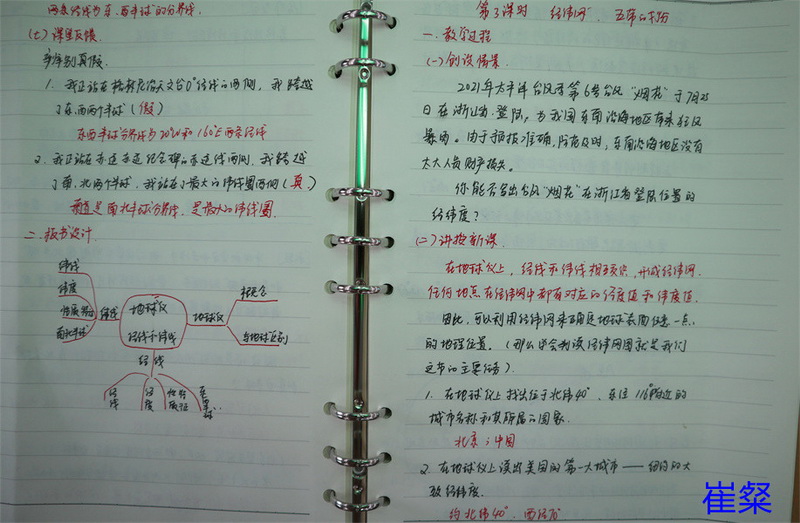 两条经线为东、西半球的分界线.
(七) 课堂反馈.
多角别真假.
1. 我正站在格林尼治天文台0°经线的两侧, 我跨越
了东西两个半球 (假)
东西半球分界线为20°W和160°E两条经线
2. 我正站在赤道赤道纪念碑的赤道线两侧, 我跨越
了南、北两个半球, 我站在了最大的纬线圈两侧 (真)
赤道是南北半球分界线, 是最大的纬线圈.
二. 板书设计.
纬线
纬度
南北半球
纬线
地球仪
经线和纬线
地球仪
概念
与地球区别
经线
经线
经度
第3课时 经纬网、五带的划分
一. 教学过程
(一) 创设情景
2021年太平洋台风季第6号台风“烟花”于7月25
日在浙江省登陆, 为我国东南沿海地区带来狂风
暴雨. 由于预报准确, 防范及时, 东南沿海地区没有
太大人员财产损失.
你能否名出台风“烟花”在浙江省登陆位置的
经纬度?
(二) 讲授新课.
在地球仪上, 经线和纬线相互交织, 形成经纬网.
任何地点在经纬网中都有对应的经度值和纬度值.
因此, 可以利用经纬网来确定地球表面任意一点
的地理位置. (那么学会判读经纬网图就是我们
这节的主要任务)
1. 在地球仪上找出位于北纬40°、东经116°附近的
城市名称和其所属的国家.
北京; 中国
2. 在地球仪上读出美国的第一大城市——纽约的大
致经纬度.
约北纬40°, 西经75°
崔粲